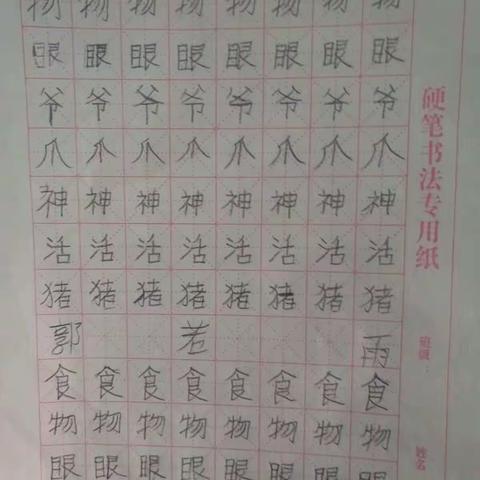 物物物物物物物物
眼眼眼眼眼眼眼眼
爷爷爷爷爷爷爷爷
爪爪爪爪爪爪爪爪
神神神神神神神神
活活活活活活活活
猪猪猪猪猪猪猪猪
郭 若 雨
食食食食食食食食
物物物物物物物物
眼眼眼眼眼眼眼眼
硬笔书法专用纸
班级：
姓名